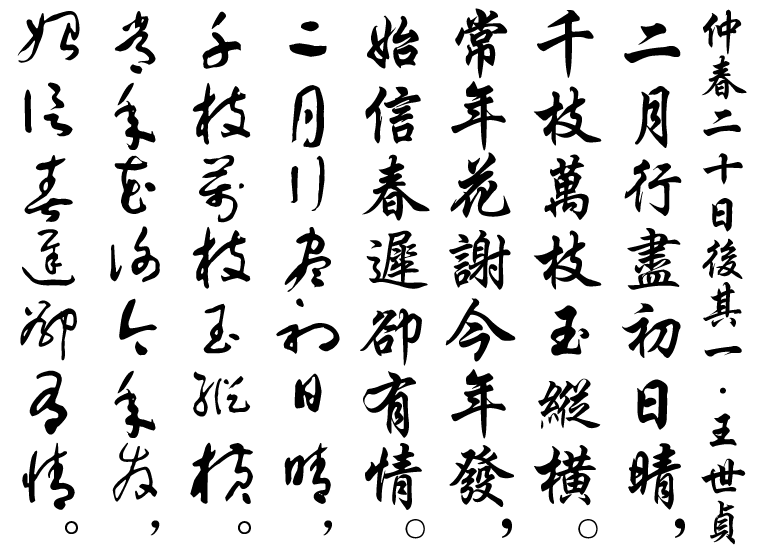 仲春二十日後其一·王世貞
二月行盡初日晴，
千枝萬枝玉縱橫。
常年花謝今年發，
始信春遲卻有情。
二月行盡初日晴，
千枝萬枝玉縱橫。
常年花謝今年發，
始信春遲卻有情。